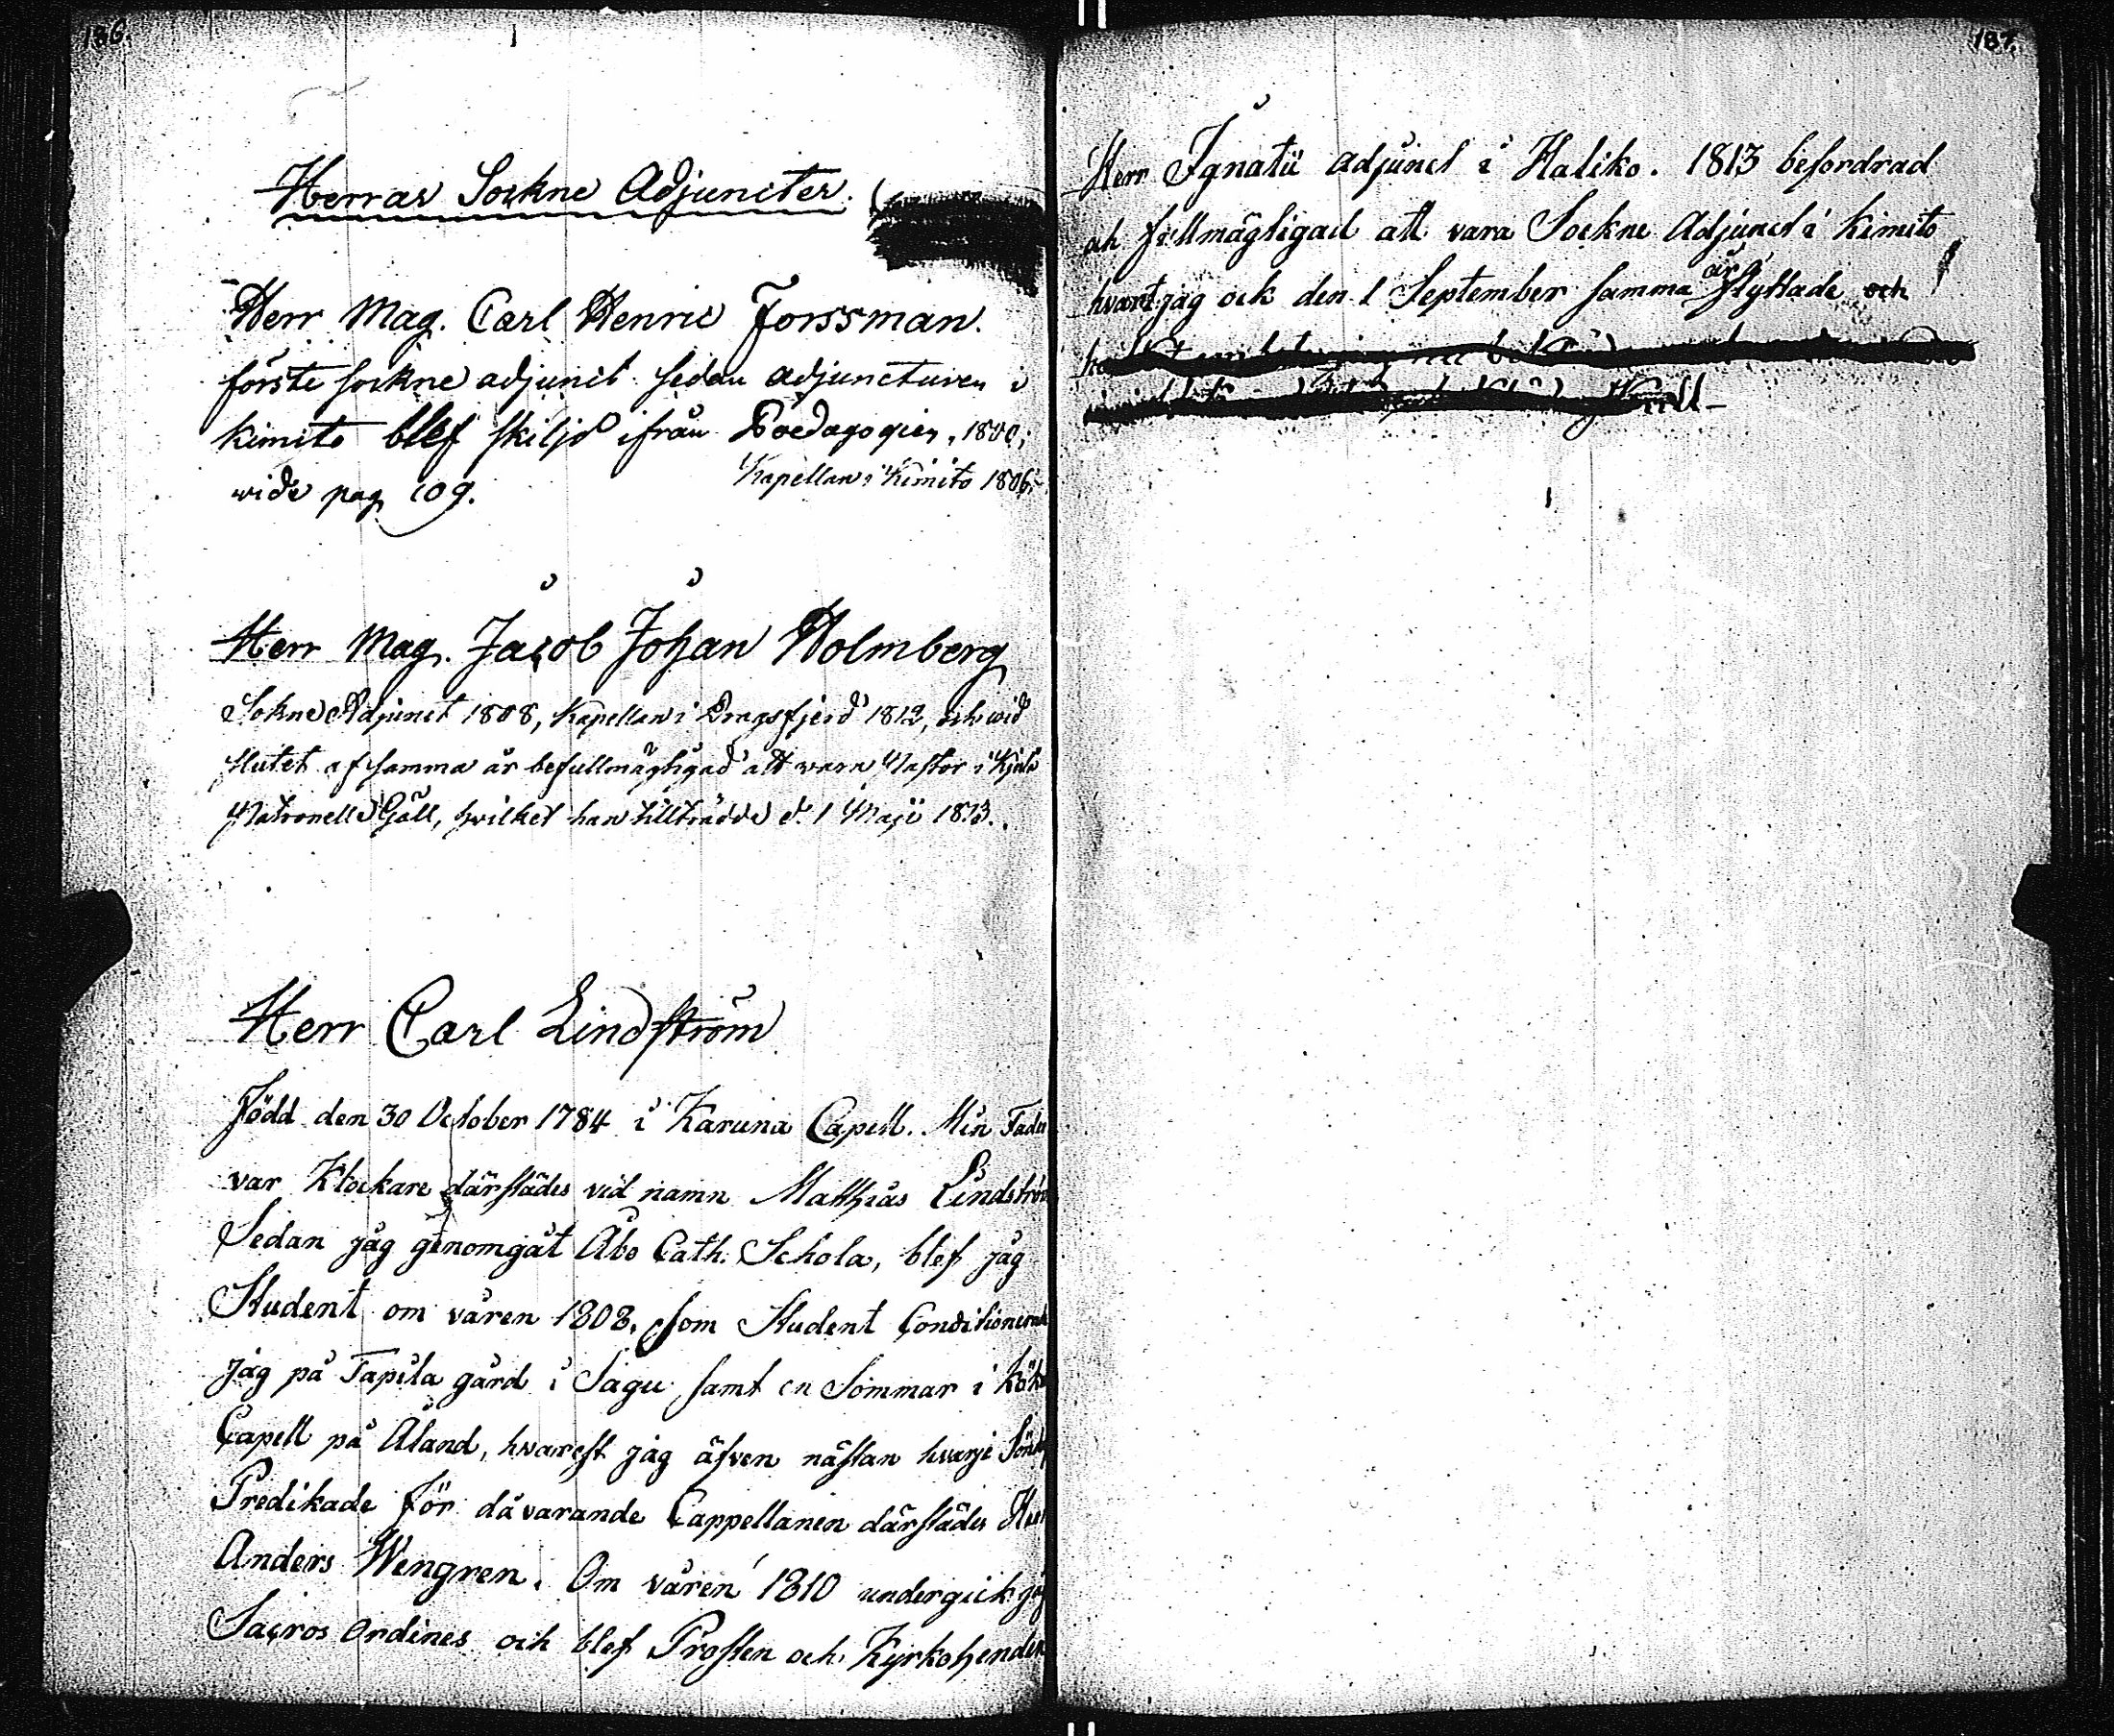 186.
Herrar Sockne Adjuncter.
Herr Mag. Carl Henric Forssman.
förste sockne adjunct sedan adjuncturen i
Kimito blef skiljd ifrån Pædagogien, 1800;
Kapellan i Kimito 1806;
wide pag 109.
Herr Mag. Jacob Johan Holmberg
Sokne Adjunct 1808, Kapellan i Dragsfjerd 1812, och wid
slutet af samma år befullmägtigad att wara Pastor i
Patronelle Gäll, hvilket han tillträdde d. 1 Maji 1813.
Herr Carl Lindström
Född den 30 October 1784 i Karuna Capell. Min Fader
var Klockare därstädes vid namn Matthias Lindström
Sedan jag genomgåt Åbo Cath. Schola, blef jag
Student om våren 1808. Som Student Conditionerade
jag på Tapila gård i Sagu samt en Sommar i
Capell på Åland, hvarest jag äfven nästan hvarje
Predikade för dåvarande Cappellanen därstädes Herr
Anders Wengren. Om våren 1810 undergick jag
Sacros Ordines och blef Prosten och Kyrkoherden
187.
Herr Ignatii adjunct i Haliko. 1813 befordrad
ok fullmägtigad att vara Sockne Adjunct i Kimito
hvart jag ock den 1 September samma år flyttade och